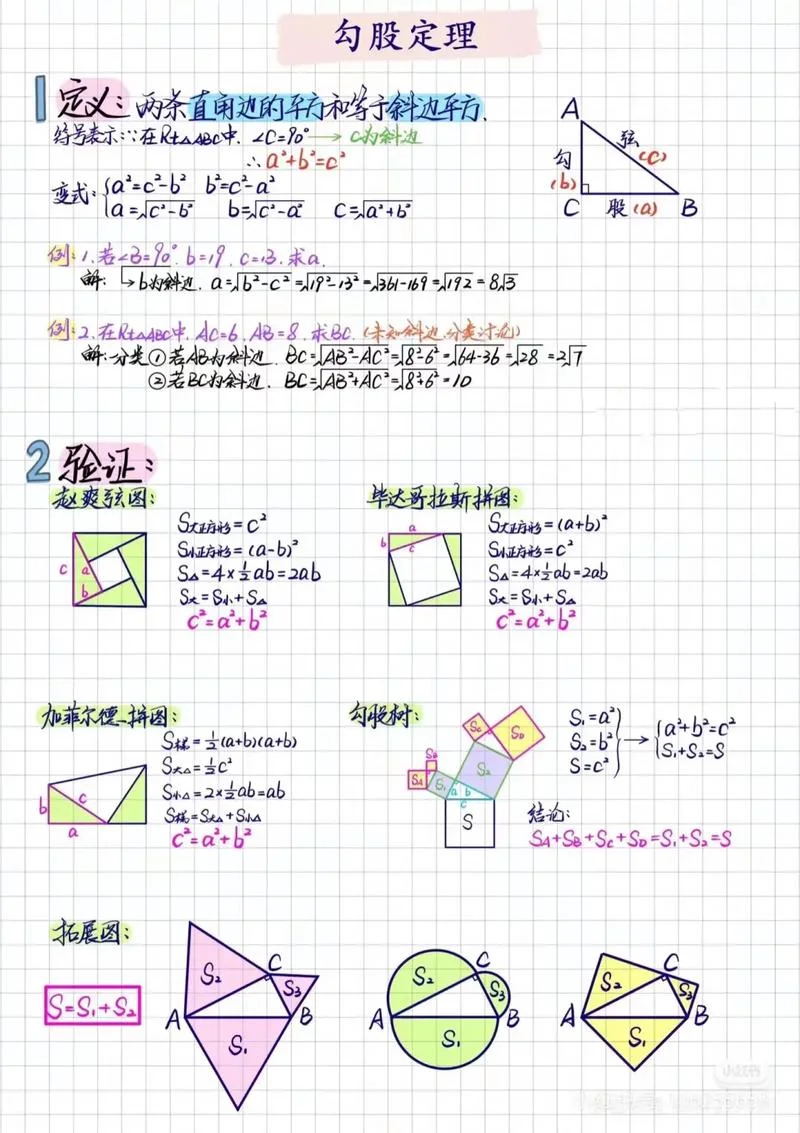 勾股定理
1 定义:两条直角边的平方和等于斜边平方.
符号表示:∵在Rt△ABC中.∠C=90°→c为斜边
∴a²+b²=c²
变式:{a²=c²-b² b²=c²-a²
a=√c²-b² b=√c²-a² c=√a²+b²
A
弦
(c)
勾
(b)
C
股(a)
B
例:1.若∠B=90°.b=19.c=13.求a.
解:→b为斜边.a=√b²-c²=√19²-13²=√361-169=√192=8√3
例:2.在Rt△ABC中.AC=6.AB=8.求BC.(未知斜边.分类讨论)
解:分类①若AB为斜边.BC=√AB²-AC²=√8²-6²=√64-36=√28=2√7
②若BC为斜边.BC=√AB²+AC²=√8²+6²=10
2 验证:
赵爽弦图:
c
a
b
S大正方形=c²
S小正方形=(a-b)²
S△=4×½ab=2ab
S大=S小+S△
c²=a²+b²
毕达哥拉斯拼图:
a
b
c
S大正方形=(a+b)²
S小正方形=c²
S△=4×½ab=2ab
S大=S小+S△
c²=a²+b²
加菲尔德拼图:
b
c
a
S梯=½(a+b)(a+b)
S大△=½c²
S小△=2×½ab=ab
S梯=S大△+S小△
c²=a²+b²
勾股树:
SC
SD
SB
SA
S1
S2
a b
c
S
S1=a²
S2=b²
S=c²
}→{a²+b²=c²
S1+S2=S
结论:
SA+SB+SC+SD=S1+S2=S
拓展图:
S=S1+S2
S2
C
S3
A
B
S1
S2
C
S3
A
B
S1
S2
C
S3
A
B
S1
小红书